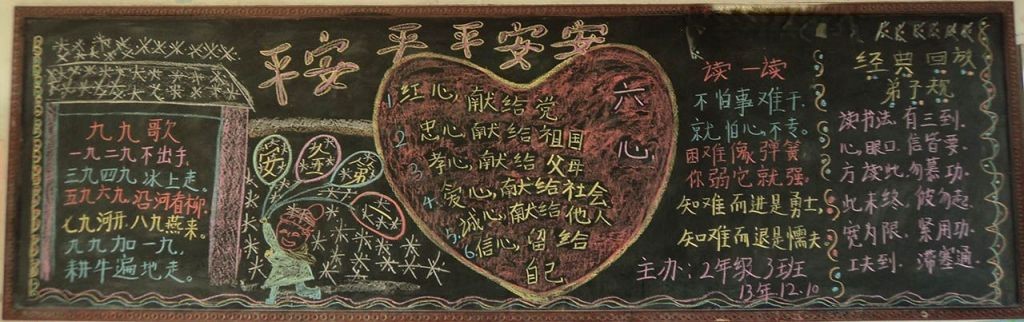 平安 平平安安
九九歌
一九二九不出手,
三九四九,冰上走。
五九六九,沿河看柳.
七九河开,八九燕来。
九九加一九,
耕牛遍地走。
安 第一
六心
1.红心,献给党
2 忠心,献给祖国
3.孝心,献给父母
4.爱心,献给社会
5.诚心献给他人
6信心留给
自己
读一读
不怕事难干.
就怕心不专。
困难像弹簧
你弱它就强.
知难而进是勇士,
知难而退是懦夫.
主办:2年级3班
13年12.10
经典回放
弟子规
读书法.有三到.
心,眼口.信皆要.
方读此.勿慕功.
此未终.彼勿起.
宽为限.紧用功.
工夫到.滞塞通.